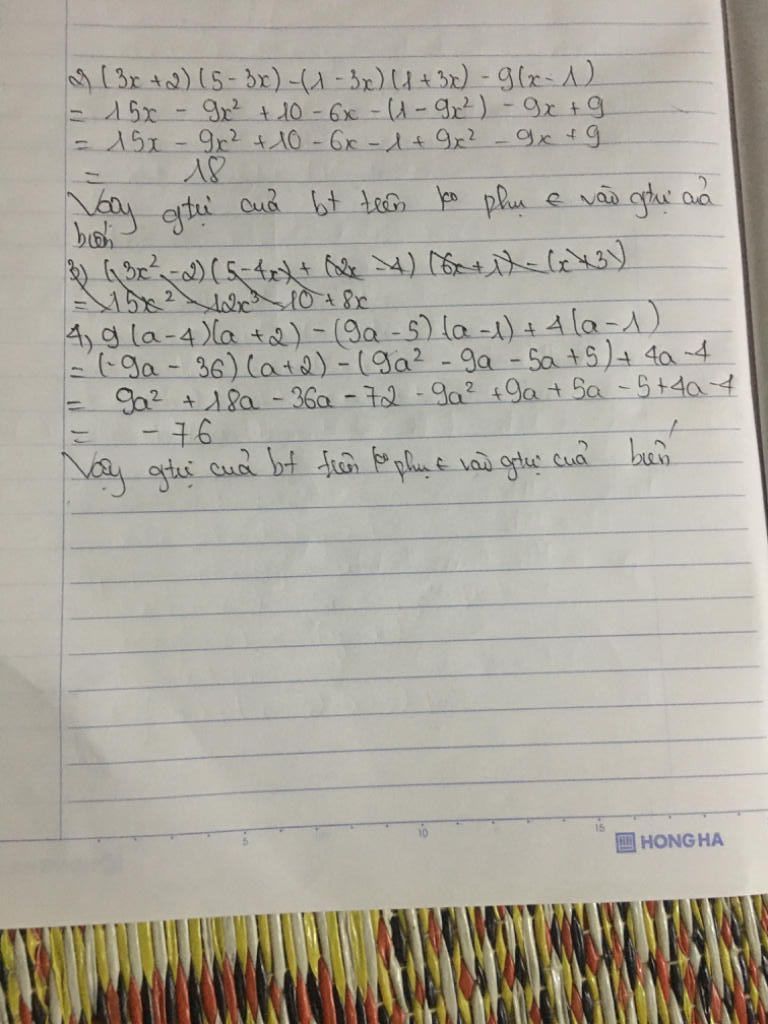 2, (3x + 2) (5 - 3x) - (1 - 3x) (1 + 3x) - 9(x - 1)
= 15x - 9x² + 10 - 6x - (1 - 9x²) - 9x + 9
= 15x - 9x² + 10 - 6x - 1 + 9x² - 9x + 9
= 18
Vậy gtrị của bt trên ko phụ € vào gtrị của
biến
3) (3x² - 2) (5 - 4x) + (2x - 4) (6x + 1) - (x + 3)
= 15x² - 12x³ - 10 + 8x
4, 9 (a - 4) (a + 2) - (9a - 5) (a - 1) + 4 (a - 1)
= (-9a - 36) (a + 2) - (9a² - 9a - 5a + 5) + 4a - 4
= 9a² + 18a - 36a - 72 - 9a² + 9a + 5a - 5 + 4a - 4
= - 76
Vậy gtrị của bt trên ko phụ € vào gtrị của biến
5 10 15
HONG HA